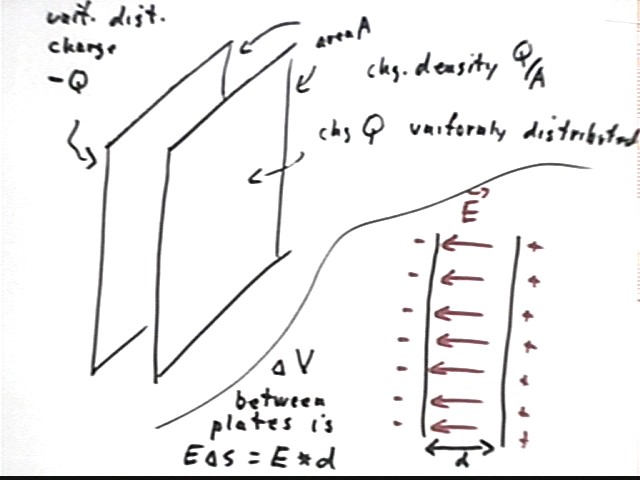 unif. dist.
charge
-Q
area A
chg. density Q/A
chg Q uniformly distributed
E
- +
- +
- +
- +
- +
- +
- +
d
ΔV
between
plates is
EΔs = E * d